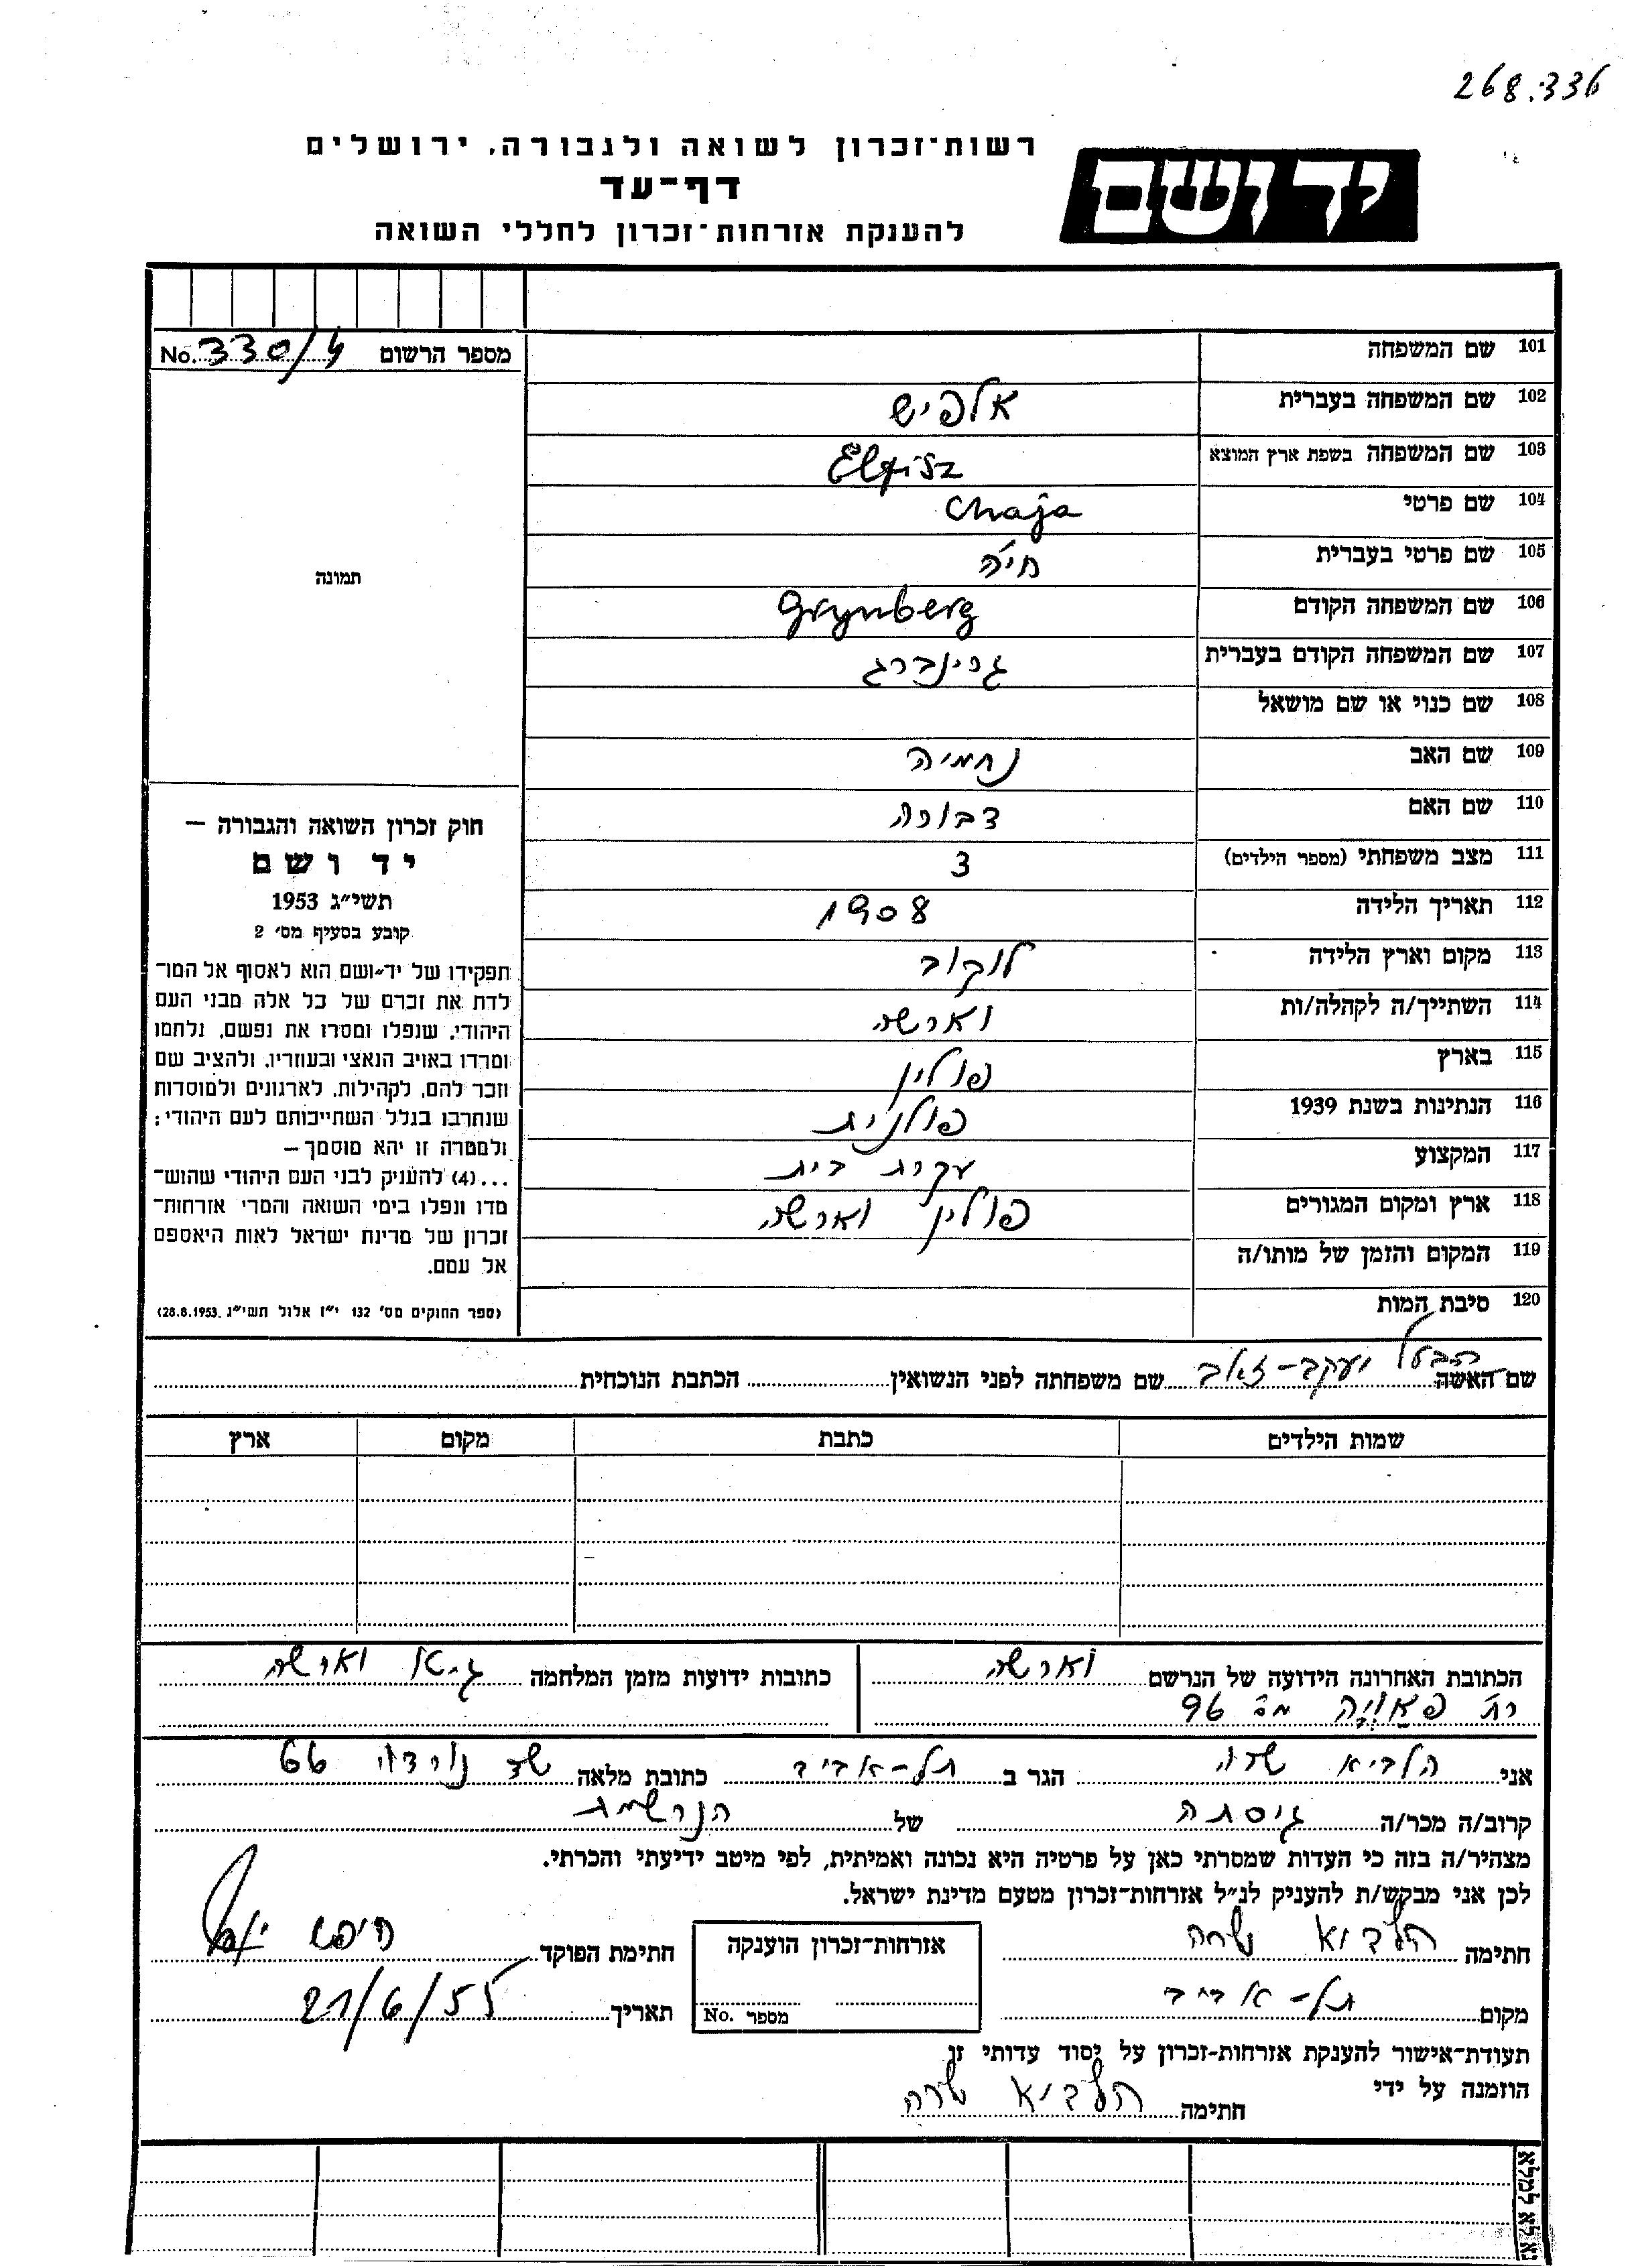 268.336
יד ושם
רשות־זכרון לשואה ולגבורה, ירושלים
דף־עד
להענקת אזרחות־זכרון לחללי השואה
מספר הרשום No. 330/4
תמונה
חוק זכרון השואה והגבורה —
יד ושם
תשי״ג 1953
קובע בסעיף מס׳ 2
תפקידו של יד־ושם הוא לאסוף אל המו־
לדת את זכרם של כל אלה מבני העם
היהודי, שנפלו ומסרו את נפשם, נלחמו
ומרדו באויב הנאצי ובעוזריו, ולהציב שם
וזכר להם, לקהילות, לארגונים ולמוסדות
שנחרבו בגלל השתייכותם לעם היהודי;
ולמטרה זו יהא מוסמך —
...(4) להעניק לבני העם היהודי שהוש־
מדו ונפלו בימי השואה והמרי אזרחות־
זכרון של מדינת ישראל לאות היאספם
אל עמם.
(ספר החוקים מס׳ 132 י״ז אלול תשי״ג 28.8.1953)
101 שם המשפחה
102 שם המשפחה בעברית אלפיש
103 שם המשפחה בשפת ארץ המוצא Elfisz
104 שם פרטי Chaja
105 שם פרטי בעברית חיה
106 שם המשפחה הקודם Grynberg
107 שם המשפחה הקודם בעברית גרינברג
108 שם כנוי או שם מושאל
109 שם האב נחמיה
110 שם האם דבורה
111 מצב משפחתי (מספר הילדים) 3
112 תאריך הלידה 1908
113 מקום וארץ הלידה לוקוב
114 השתייך/ה לקהלה/ות ווארשה
115 בארץ פולין
116 הנתינות בשנת 1939 פולנית
117 המקצוע עקרת בית
118 ארץ ומקום המגורים פולין ווארשה
119 המקום והזמן של מותו/ה
120 סיבת המות
שם האשה הבעל יעקב-זאב שם משפחתה לפני הנשואין הכתבת הנוכחית
שמות הילדים כתבת מקום ארץ
הכתובת האחרונה הידועה של הנרשם ווארשה
רח פאוויה מב 96
כתובות ידועות מזמן המלחמה גיטו ווארשה
אני הלביא שרה הגר ב תל-אביב כתובת מלאה שד נורדאו 66
קרוב/ה מכר/ה גיסתה של הנרשמת
מצהיר/ה בזה כי העדות שמסרתי כאן על פרטיה היא נכונה ואמיתית, לפי מיטב ידיעתי והכרתי.
לכן אני מבקש/ת להעניק לנ״ל אזרחות־זכרון מטעם מדינת ישראל.
חתימה הלביא שרה אזרחות־זכרון הוענקה חתימת הפוקד
מקום תל-אביב מספר No. תאריך 21/6/55
תעודת־אישור להענקת אזרחות־זכרון על יסוד עדותי זו
הוזמנה על ידי
חתימה הלביא שרה
נא לא למלא